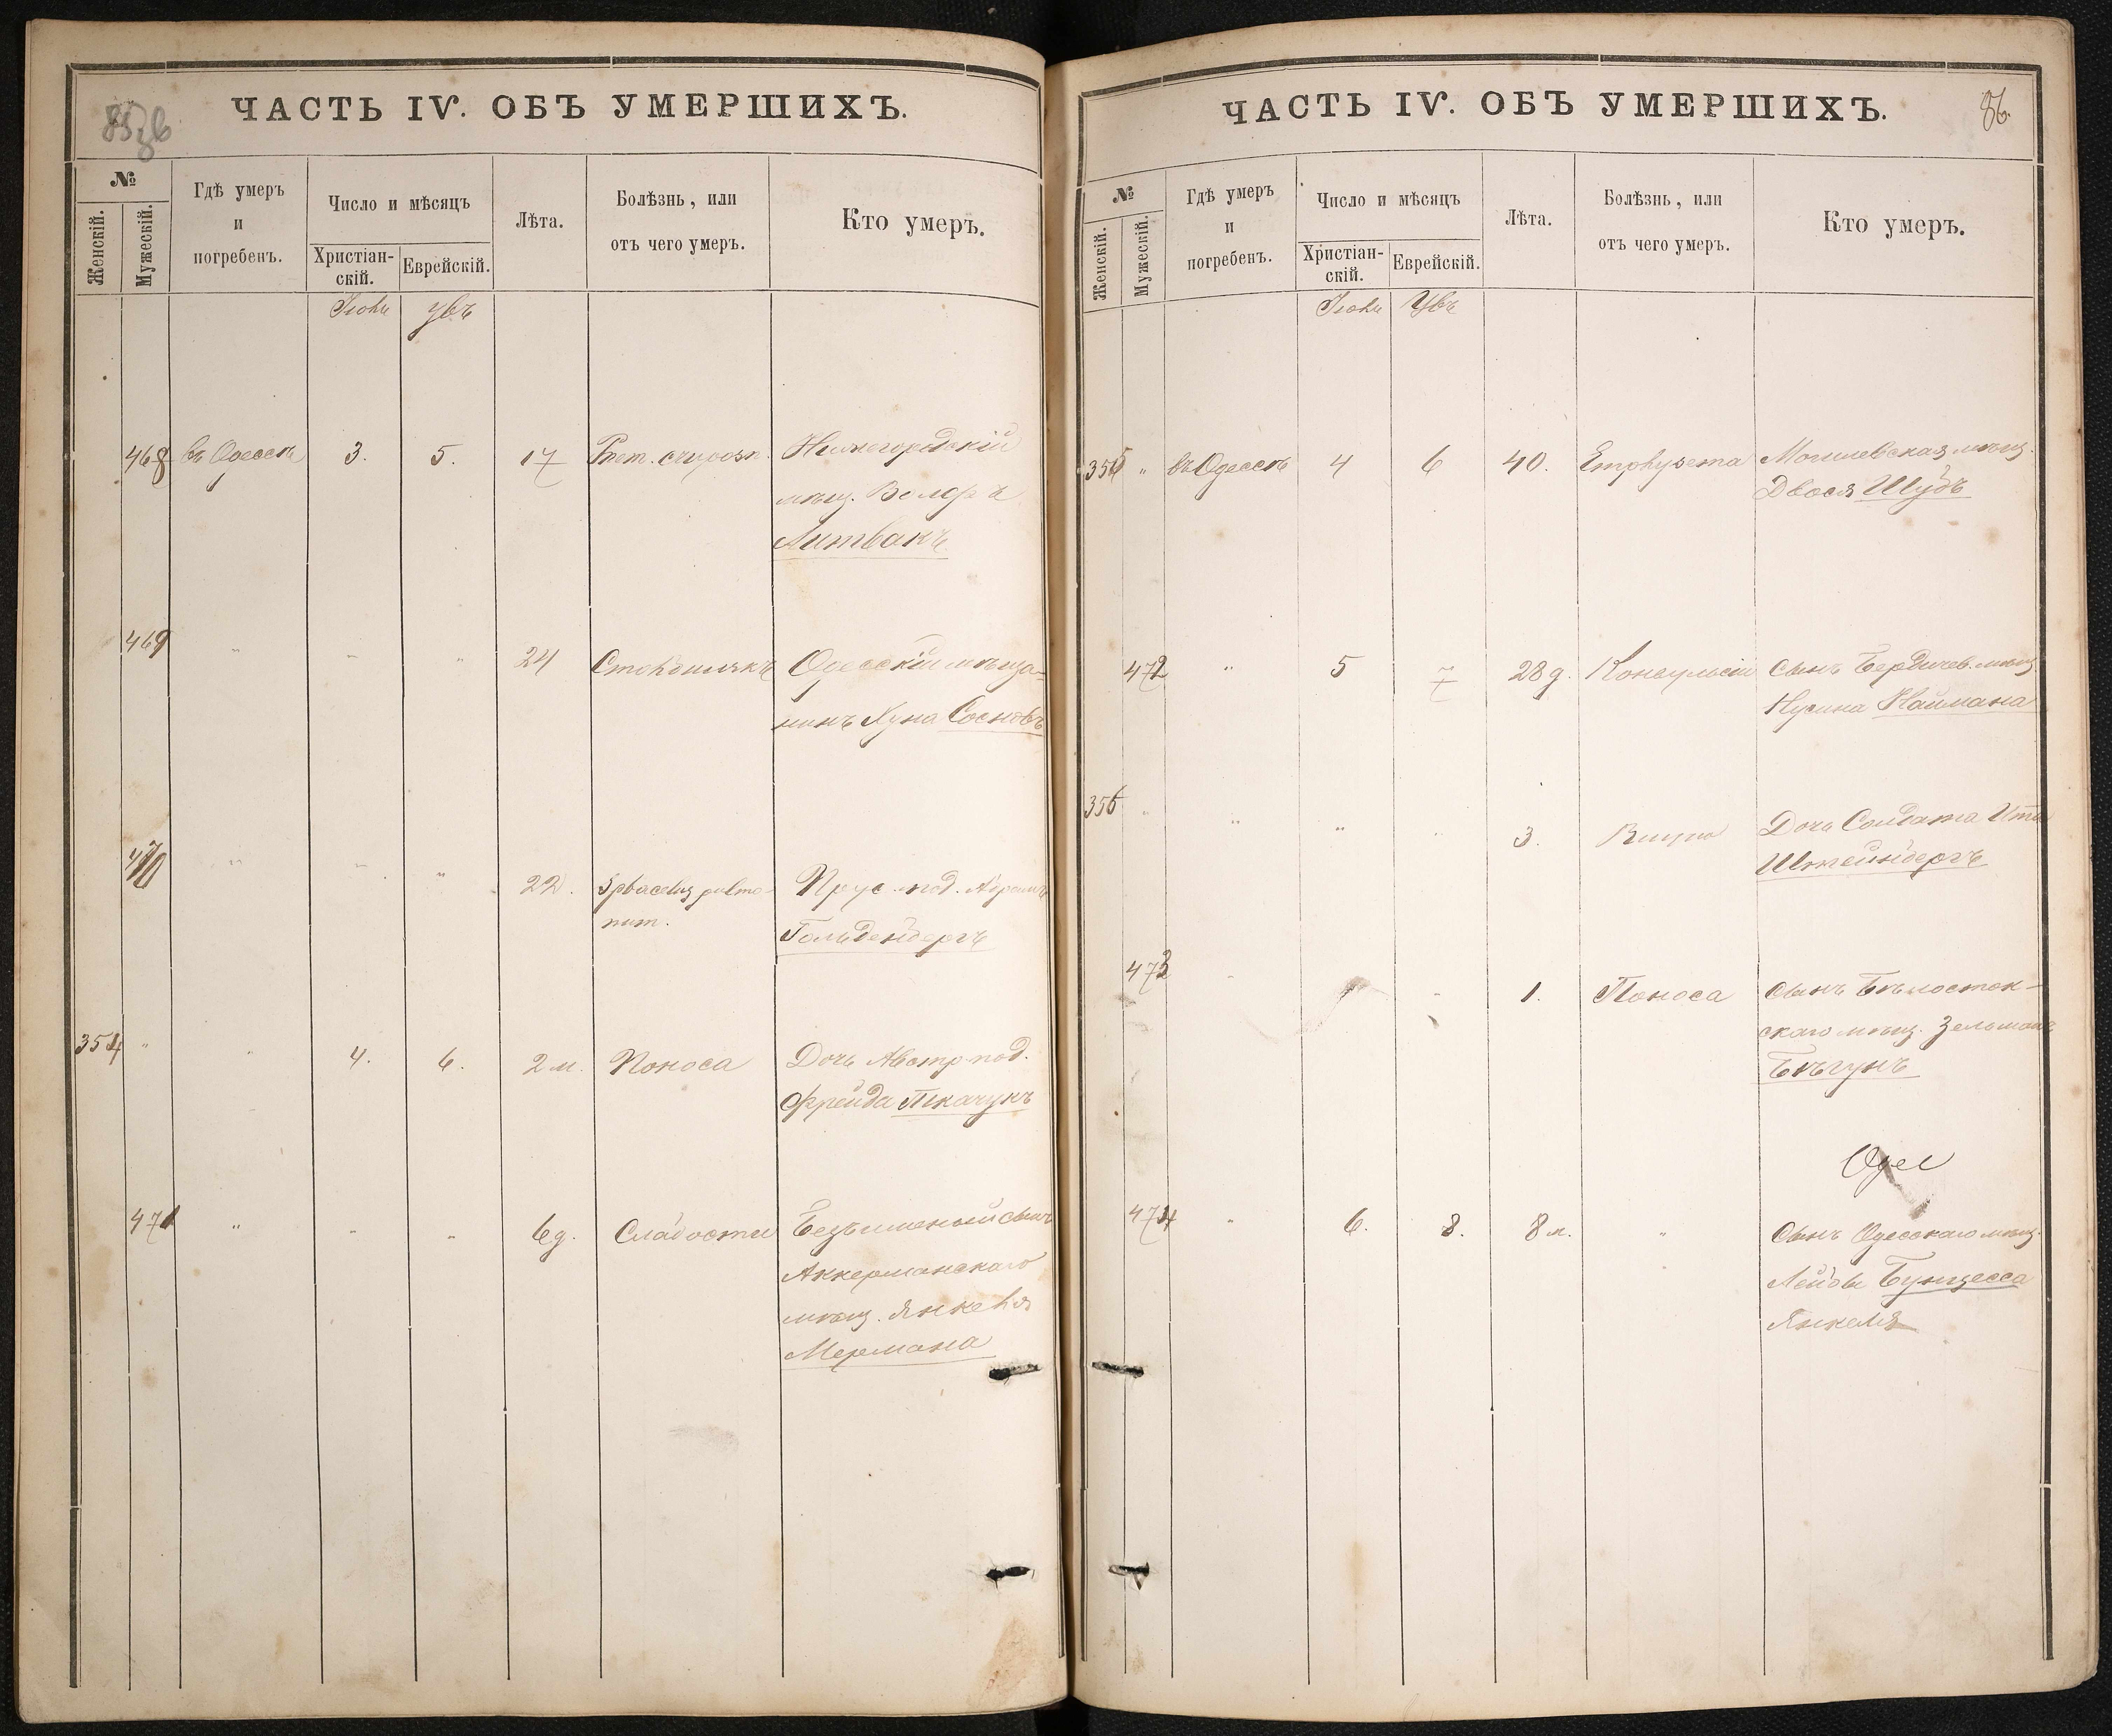 ЧАСТЬ IV. ОБЪ УМЕРШИХЪ.
№
Женскій.
Мужескій.
Гдѣ умеръ
и
погребенъ.
Число и мѣсяцъ
Христіан-
скій.
Еврейскій.
Лѣта.
Болѣзнь, или
отъ чего умеръ.
Кто умеръ.
468 въ Одессѣ 3. 5. 17
мѣщ.
Литвакъ
469 " " " 24 Одесскій мѣща-
нинъ Сосновъ
470 " " " 22. Sphacelus pulmo-
Прус. под. Абрамъ
Гольденбергъ
354 " " 4. 6. 2 м. Поноса Дочь Австр. под.
Фрейда Ткачукъ
471 " " " 6 д. Слабости Безъименый сынъ
Аккерманскаго
мѣщ. Янкеля
Мермана
ЧАСТЬ IV. ОБЪ УМЕРШИХЪ.
86.
№
Женскій.
Мужескій.
Гдѣ умеръ
и
погребенъ.
Число и мѣсяцъ
Христіан-
скій.
Еврейскій.
Лѣта.
Болѣзнь, или
отъ чего умеръ.
Кто умеръ.
355 " въ Одессѣ 4 6 40. Emphysema Могилевская мѣщ.
Двося Шубъ
472 " 5 7 28 д. Конвульсіи Сынъ Бердичев. мѣщ.
Нусина Наймана
356 " " " " 3. Дочь Солдата
Штейнбергъ
473 " " 1. Поноса Сынъ Бѣлосток-
скаго мѣщ. Зельмана
Бѣгунъ
474 " 6. 8. 8 м. " Сынъ Одесскаго мѣщ.
Лейбы
Янкель